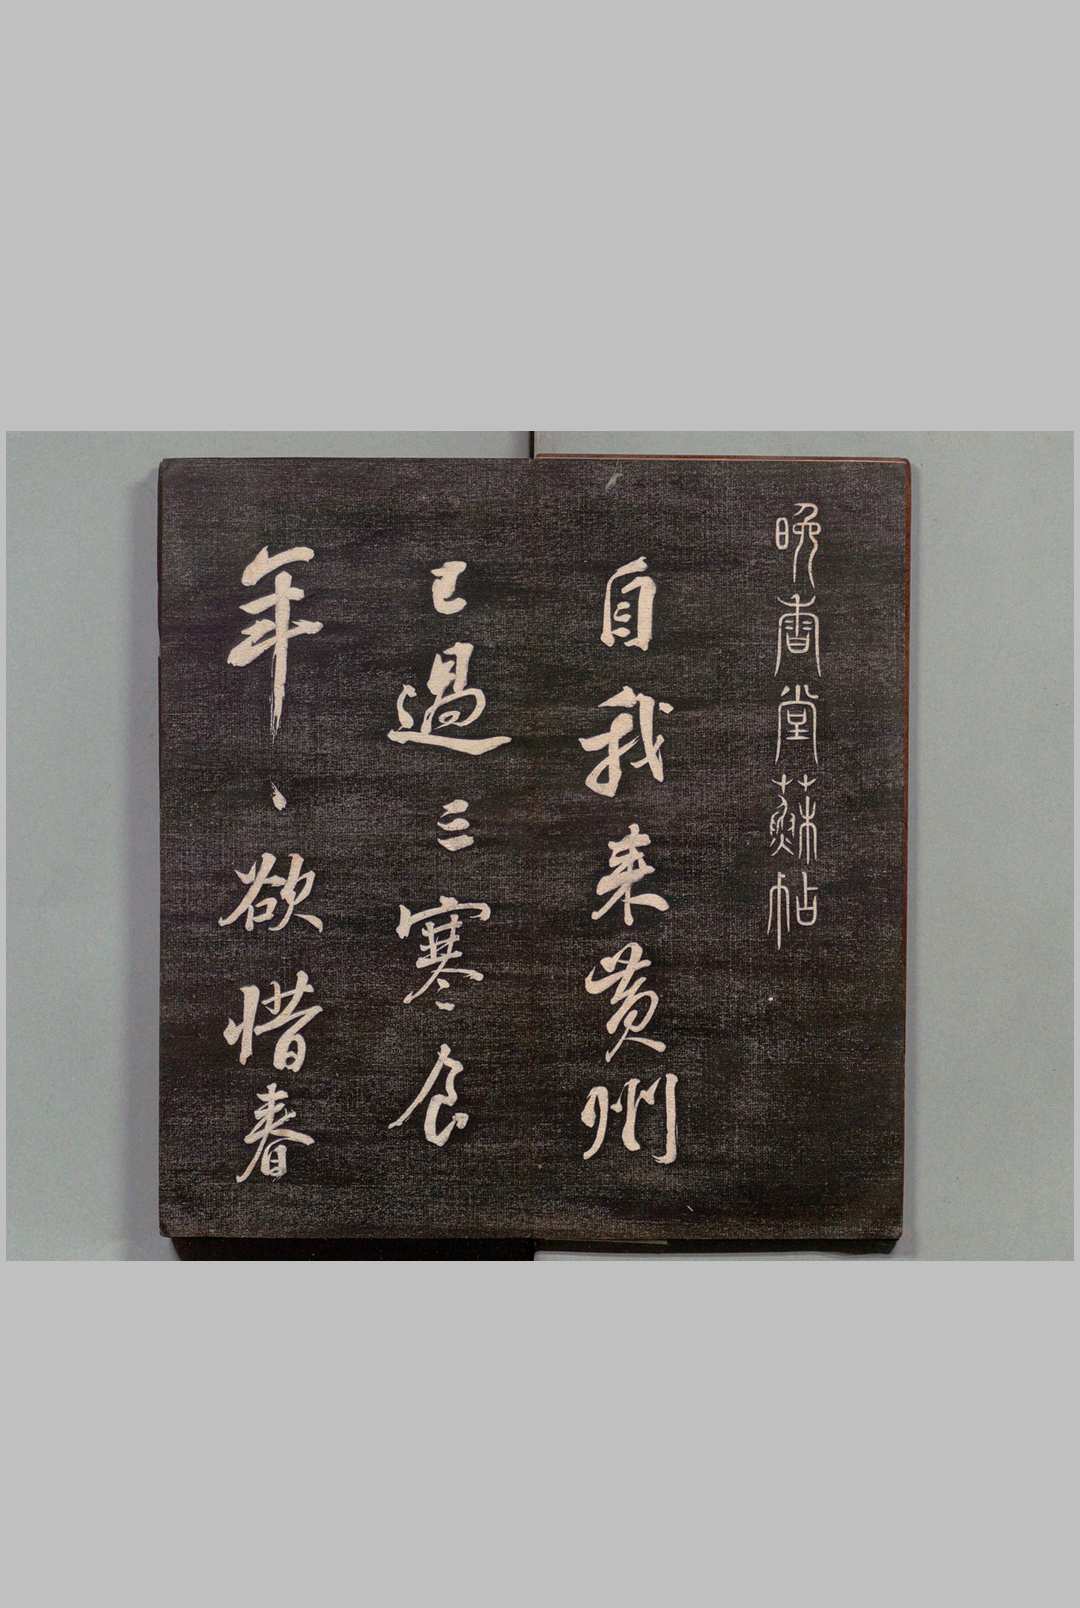 晚香堂蘇帖
自我来黄州
已過三寒食
年〻欲惜春